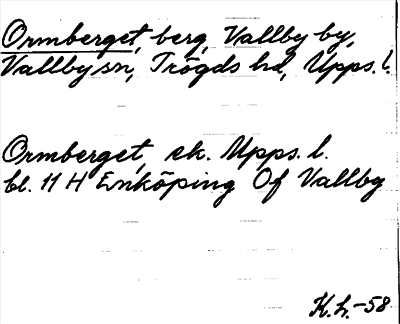 Ormberget, berg, Vallby by,
Vallby sn, Trögds hd, Upps. l.
Ormberget, ek. Upps. l.
bl. 11 H Enköping Of Vallby
K.h.-58